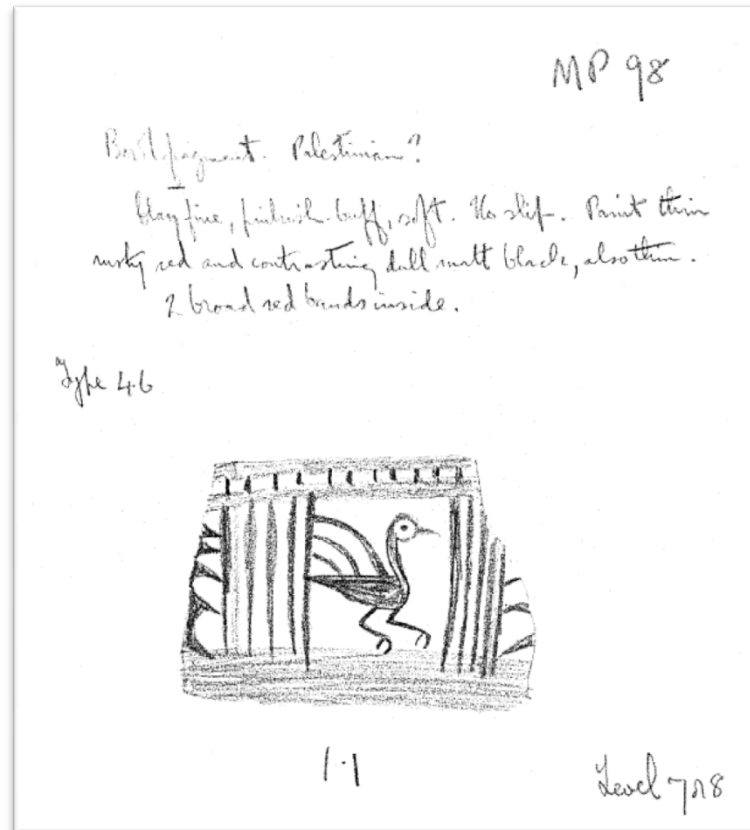 MP 98
Bowl fragment. Palestinian?
Clay fine, pinkish-buff, soft. No slip. Paint thin
rusty red and contrasting dull matt black, also thin.
2 broad red bands inside.
Type 46
1·1
Level 7 or 8